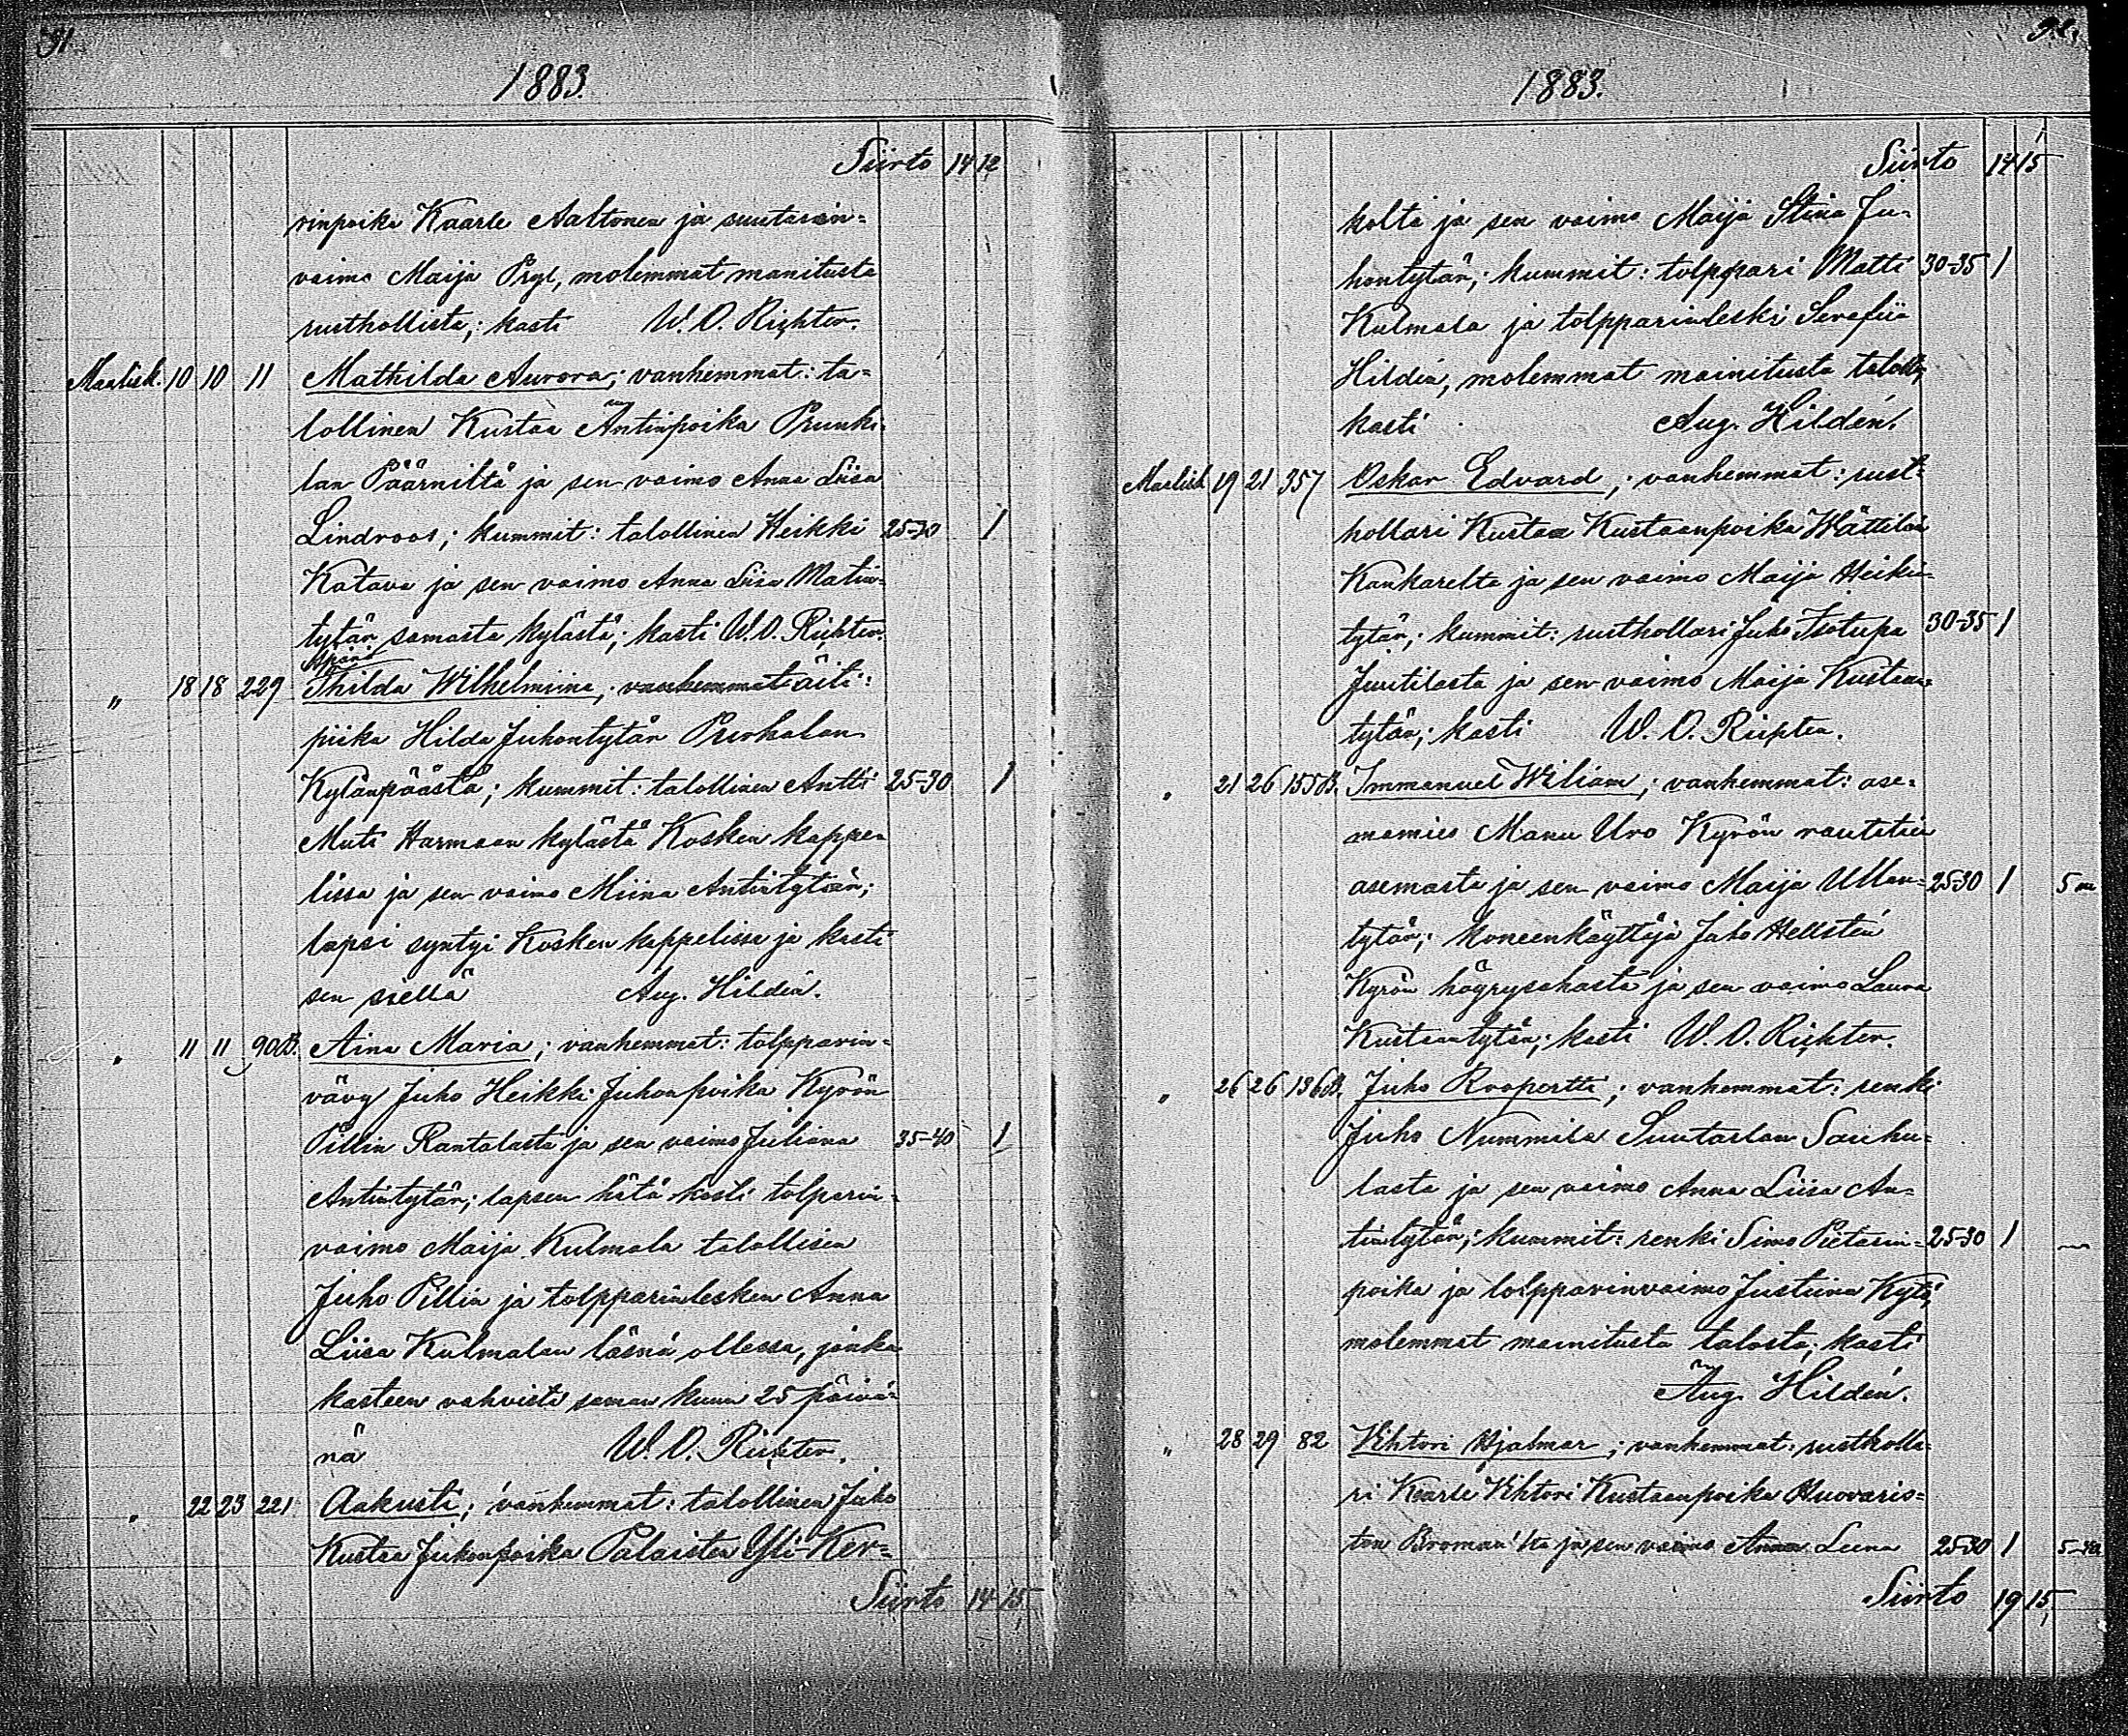 91
1883.
Siirto 14 12
rinpoika Kaarle Aaltonen ja suutarin-
vaimo Maija Pryl, molemmat manitusta
rusthollista; kasti W. O. Richter.
Maalisk. 10 10 11 Mathilda Aurora; vanhemmat: ta-
lollinen Kustaa Antinpoika Prunki-
lan Päärniltä ja sen vaimo Anna Liisa
Lindroos; kummit: talollinen Heikki 25-30 1
Katava ja sen vaimo Anna Liisa Matin-
tytär samasta kylästä; kasti W. O. Richter.
Äpärä
" 18 18 229 Thilda Wilhelmiina, vanhemmat äiti:
piika Hilda Juhontytär Purhalan
Kylänpäästä; kummit: talollinen Antti 25-30 1
Muti Harmaan kylästä Kosken kappe-
lissa ja sen vaimo Miina Antintytär;
lapsi syntyi Kosken kappelissa ja kasti
sen siellä Aug. Hildén.
" 11 11 90B. Aina Maria; vanhemmat: tolpparin-
vävy Juho Heikki Juhonpoika Kyrön
Pillin Rantalasta ja sen vaimo Juliana 35-40 1
Antintytär; lapsen hätä kasti tolparin-
vaimo Maija Kulmala talollisen
Juho Pillin ja tolpparinlesken Anna
Liisa Kulmalan läsnä ollessa, jonka
kasteen vahvisti saman kuun 25 päivä-
nä W. O. Richter.
" 22 23 221 Aakusti; vanhemmat: talollinen Juho
Kustaa Juhonpoika Palaisten Yli-Ker-
Siirto 14 15
1883.
Siirto 14 15
kolta ja sen vaimo Maija Stina Ju-
hontytär; kummit: tolppari Matti 30-35 1
Kulmala ja tolpparinleski Serafiia
Hildén, molemmat mainitusta talosta;
kasti Aug. Hildén.
Maalisk 19 21 357 Oskar Edvard; vanhemmat: rust-
hollari Kustaa Kustaanpoika Wättilän
Kankarelta ja sen vaimo Maija Heikin-
tytär; kummit: rusthollari Juho Isotupa 30-35 1
Juutilasta ja sen vaimo Maija Kustaan-
tytär; kasti W. O. Richter.
" 21 26 155B. Immanuel Wiliam; vanhemmat: ase-
mamies Manu Uro Kyrön rautatien
asemasta ja sen vaimo Maija Ullan- 25-30 1
tytär; Koneenkäyttäjä Juho Hellstén
Kyrön höyrysahasta ja sen vaimo Laura
Kustaantytär; kasti W. O. Richter.
" 26 26 136B. Juho Roopertti; vanhemmat: renki
Juho Nummila Suutarlan Sauhu-
lasta ja sen vaimo Anna Liisa An-
tintytär; kummit: renki Simo Pietarin- 25-30 1
poika ja tolpparinvaimo Justiina Kytö,
molemmat mainitusta talosta; kasti
Aug. Hildén.
" 28 29 82 Vihtori Hjalmar; vanhemmat: rustholla-
ri Kaarle Vihtori Kustaanpoika Huovaris-
ton Broman'ta ja sen vaimo Anna Leena 25-30 1
Siirto 19 15